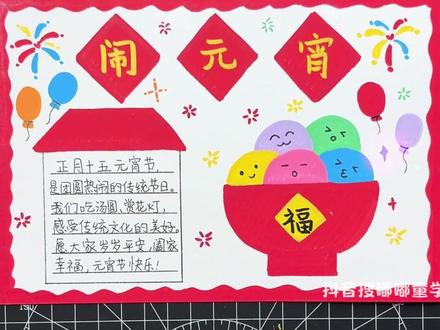 闹元宵
正月十五元宵节
是团圆热闹的传统节日。
我们吃汤圆、赏花灯,
感受传统文化的美好。
愿大家岁岁平安,阖家
幸福,元宵节快乐!
福
抖音搜嘟嘟童学